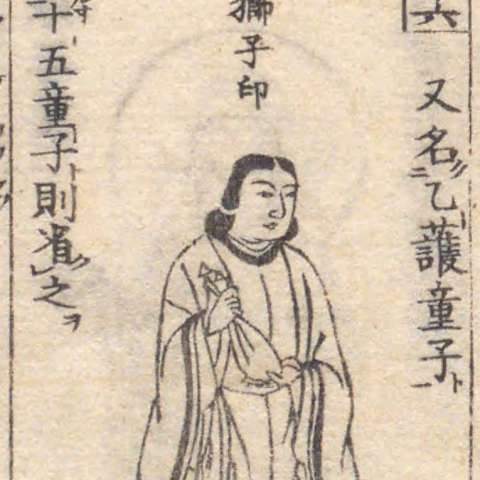 六
又名乙護童子
獅子印
十五童子則省之